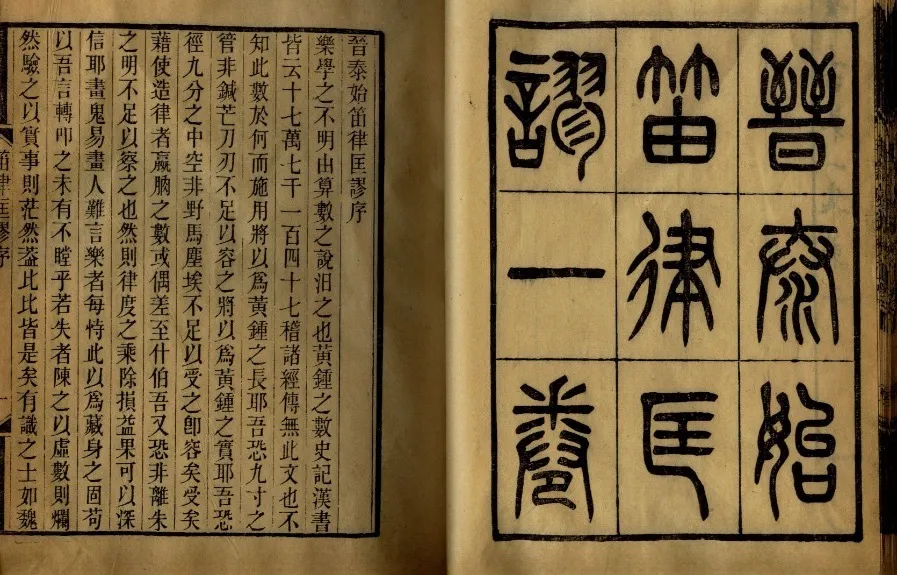 晉泰始
笛律匡
謬一卷
晉泰始笛律匡謬序
樂學之不明由算數之說汨之也黃鍾之數史記漢書
皆云十七萬七千一百四十七稽諸經傳無此文也不
知此數於何而施用將以爲黃鍾之長耶吾恐九寸之
管非鍼芒刀刃不足以容之將以爲黃鍾之實耶吾恐
徑九分之中空非野馬塵埃不足以受之卽容矣受矣
藉使造律者嬴朒之數或偶差至什伯吾又恐非離朱
之明不足以察之也然則律度之乘除損益果可以深
信耶畫鬼易畫人難言樂者每恃此以爲藏身之固苟
以吾言轉叩之未有不瞠乎若失者陳之以虛數則爛
然驗之以實事則茫然葢比比皆是矣有識之士如魏
笛律匡謬序